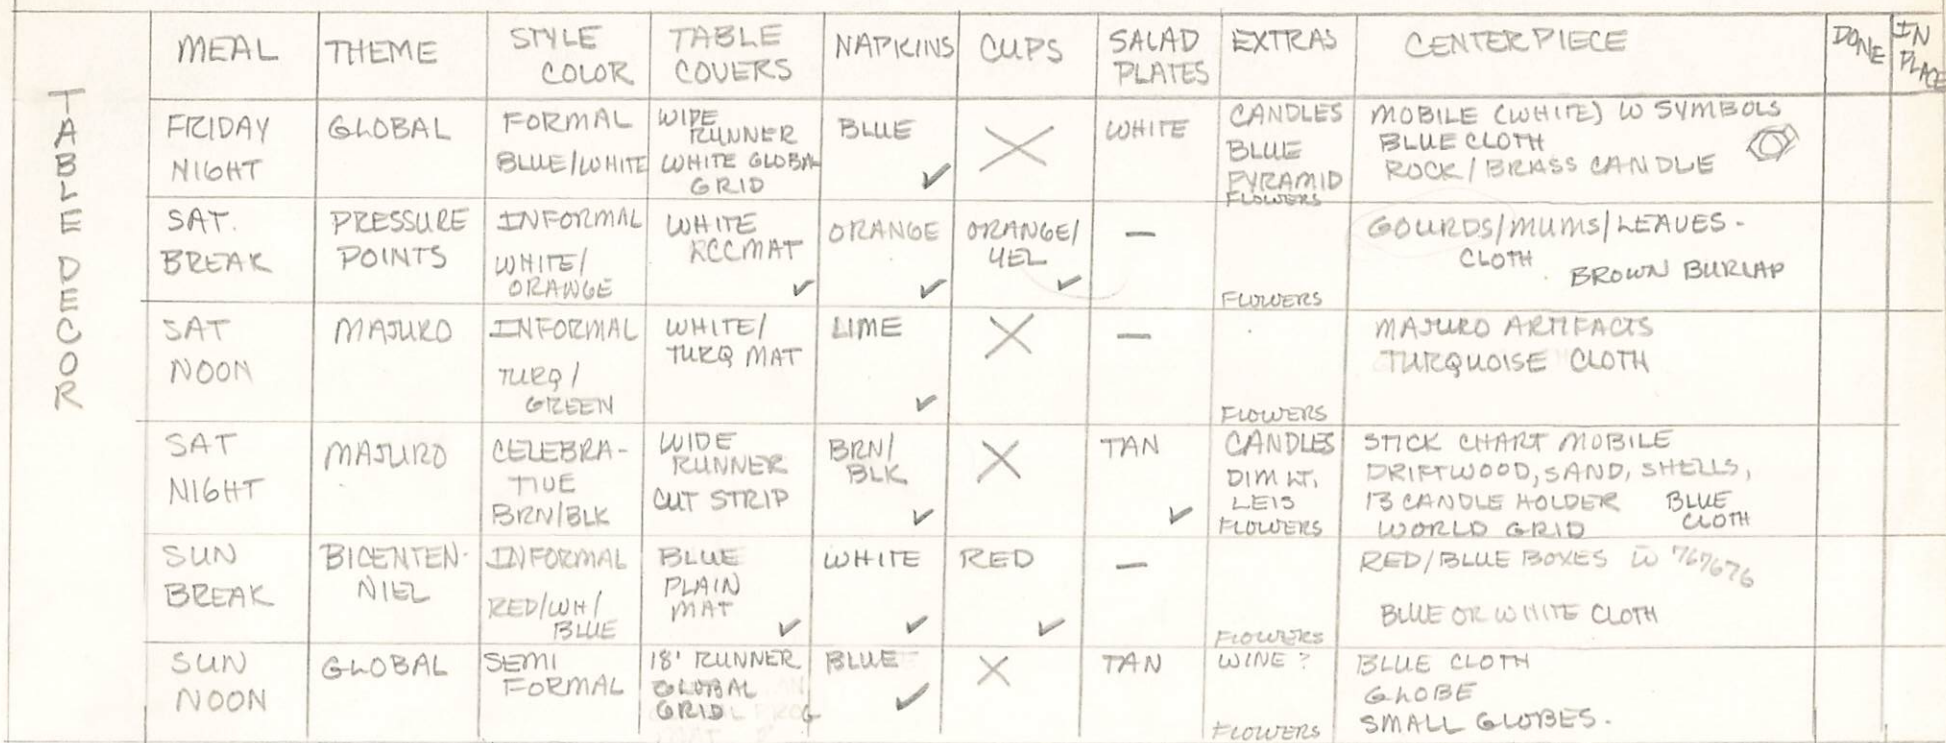 TABLE DECOR
MEAL
THEME
STYLE
COLOR
TABLE
COVERS
NAPKINS
CUPS
SALAD
PLATES
EXTRAS
CENTERPIECE
DONE
IN
PLACE
FRIDAY
NIGHT
GLOBAL
FORMAL
BLUE/WHITE
WIDE
RUNNER
WHITE GLOBAL
GRID
BLUE ✓
X
WHITE
CANDLES
BLUE
PYRAMID
FLOWERS
MOBILE (WHITE) W SYMBOLS
BLUE CLOTH
ROCK/BRASS CANDLE
SAT.
BREAK
PRESSURE
POINTS
INFORMAL
WHITE/
ORANGE
WHITE
RCC MAT ✓
ORANGE ✓
ORANGE/
YEL ✓
—
FLOWERS
GOURDS/MUMS/LEAVES -
CLOTH
BROWN BURLAP
SAT
NOON
MAJURO
INFORMAL
TURQ/
GREEN
WHITE/
TURQ MAT
LIME ✓
X
—
FLOWERS
MAJURO ARTIFACTS
TURQUOISE CLOTH
SAT
NIGHT
MAJURO
CELEBRA-
TIVE
BRN/BLK
WIDE
RUNNER
CUT STRIP
BRN/
BLK ✓
X
TAN ✓
CANDLES
DIM LT,
LEIS
FLOWERS
STICK CHART MOBILE
DRIFTWOOD, SAND, SHELLS,
13 CANDLE HOLDER BLUE
WORLD GRID CLOTH
SUN
BREAK
BICENTEN-
NIEL
INFORMAL
RED/WH/
BLUE
BLUE
PLAIN
MAT ✓
WHITE ✓
RED ✓
—
FLOWERS
RED/BLUE BOXES W 767676
BLUE OR WHITE CLOTH
SUN
NOON
GLOBAL
SEMI
FORMAL
18' RUNNER
GLOBAL
GRID
BLUE ✓
X
TAN
WINE?
FLOWERS
BLUE CLOTH
GLOBE
SMALL GLOBES.